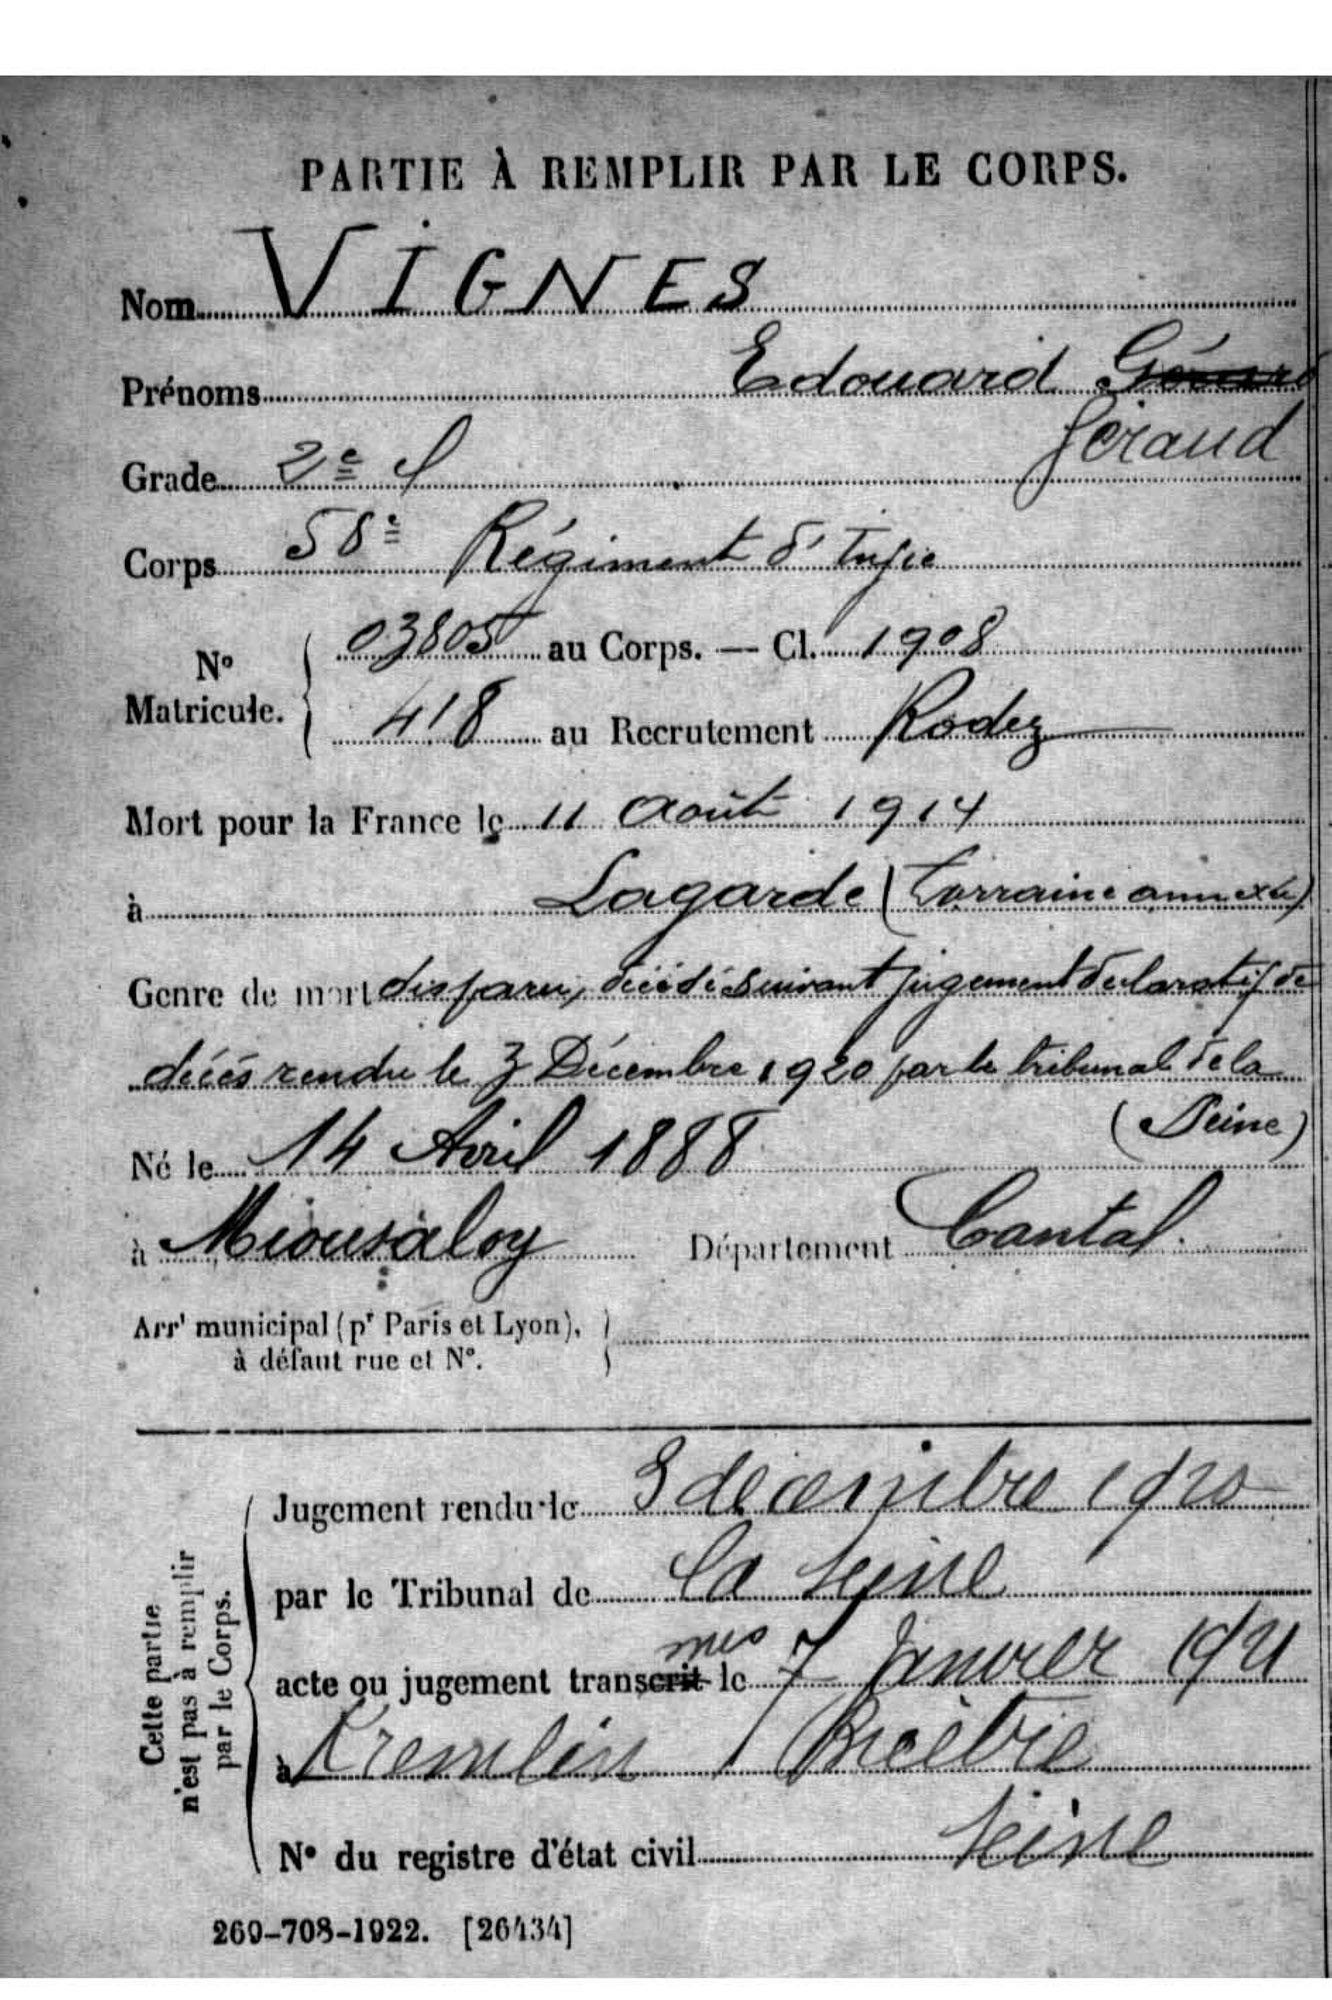 PARTIE À REMPLIR PAR LE CORPS.
Nom VIGNES
Prénoms Edouard Gérard
Géraud
Grade 2e
Corps 58e Régiment d'Infie
No Matricule. 03805 au Corps. — Cl. 1908
418 au Recrutement Rodez
Mort pour la France le 11 Août 1914
à Lagarde (Lorraine annexée)
Genre de mort disparu, décédé suivant jugement déclaratif de
décès rendu le 3 Décembre 1920 par le tribunal de la
(Seine)
Né le 14 Avril 1888
à Département Cantal.
Arrt municipal (pr Paris et Lyon),
à défaut rue et N°.
Cette partie
n'est pas à remplir
par le Corps.
Jugement rendu le 3 décembre 1920
par le Tribunal de la Seine
mis
acte ou jugement transcrit le 7 Janvier 1921
à Kremlin Bicêtre
N° du registre d'état civil Seine
269-708-1922. [26434]